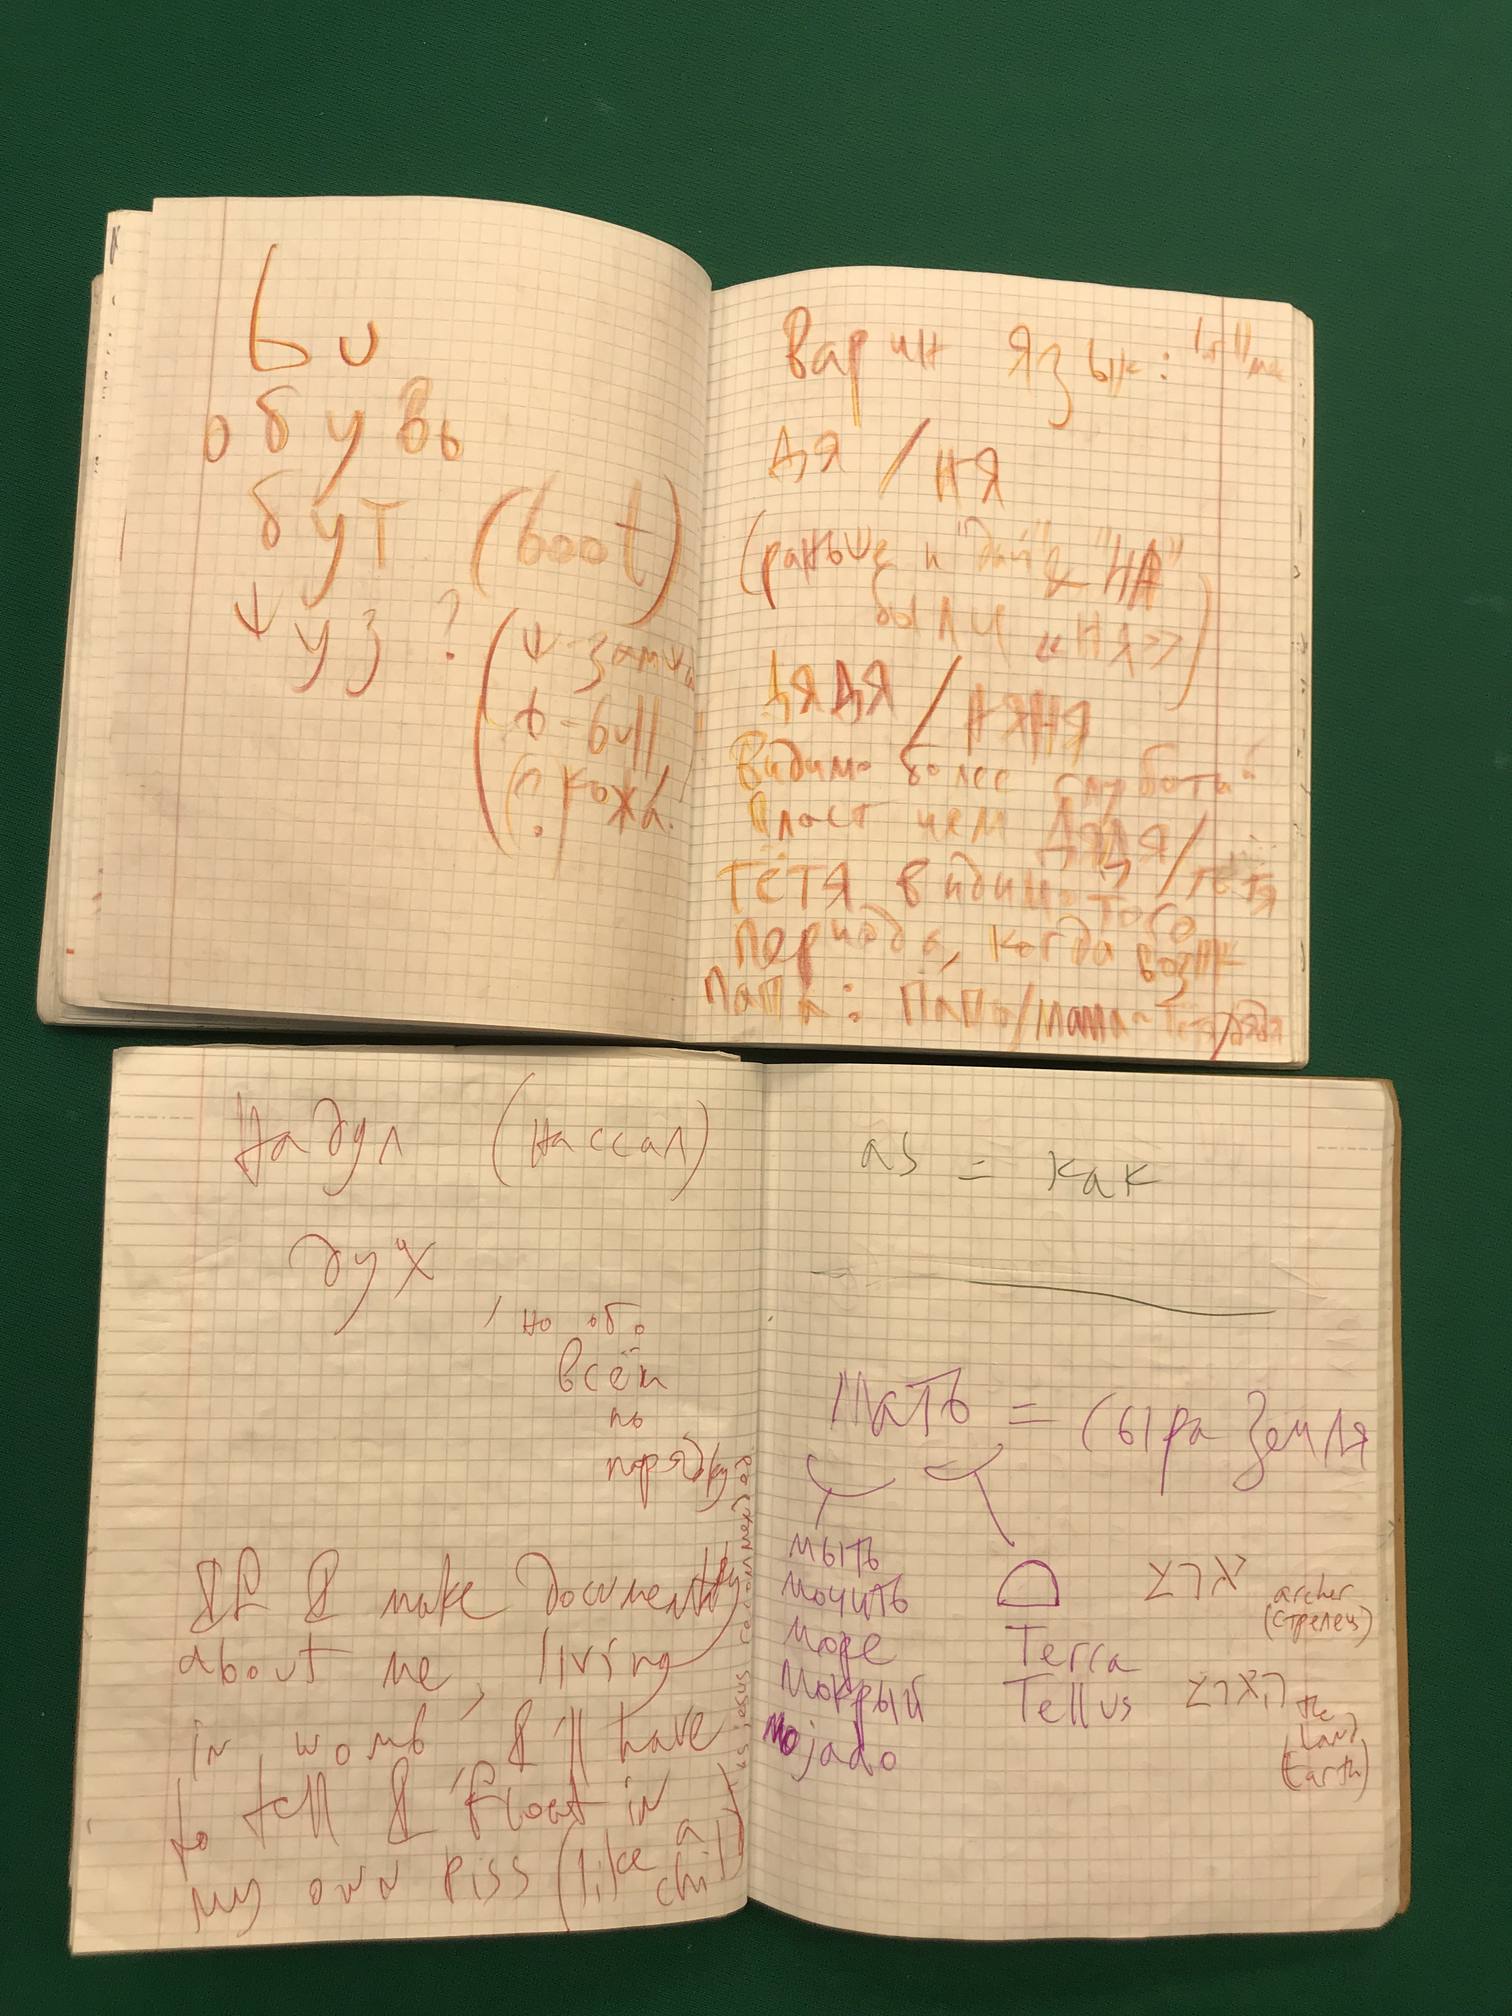 bu
обувь
бут (boot)
↓ уз ?
замш
b-bull
? кожа.
Варин язык:
ДЯ / НЯ
(раньше и "дай" & "НА"
были «НЯ»)
ДЯДЯ / НЯНЯ
Видимо более глуботи
Пласт чем ДЯДЯ/тётя
ТЁТЯ видимо того
периода, когда возник
папа: папа/мама-тётя/дядя
Надул (нассал)
дух
, но обо
всём
по
порядку
If I make documentary
about me, living
in womb, I'll have
to tell I float in
my own piss (like a
child)
as jesus commended
as = как
Мать = Сыра Земля
мыть
мочить
море
мокрый
mojado
Terra
Tellus
ארץ archer
(стрелец)
הארץ the
land
(Earth)